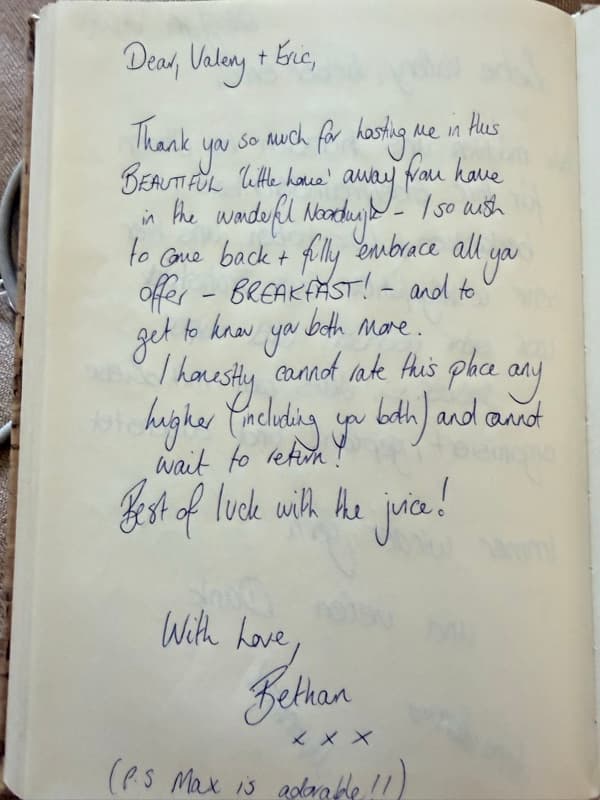 Dear, Valery + Eric,
Thank you so much for hosting me in this
BEAUTIFUL 'little home' away from home
in the wonderful Noordwijk - I so wish
to come back + fully embrace all you
offer - BREAKFAST! - and to
get to know you both more.
I honestly cannot rate this place any
higher (including you both) and cannot
wait to return!
Best of luck with the juice!
With Love,
Bethan
x x x
(P.S Max is adorable!!)